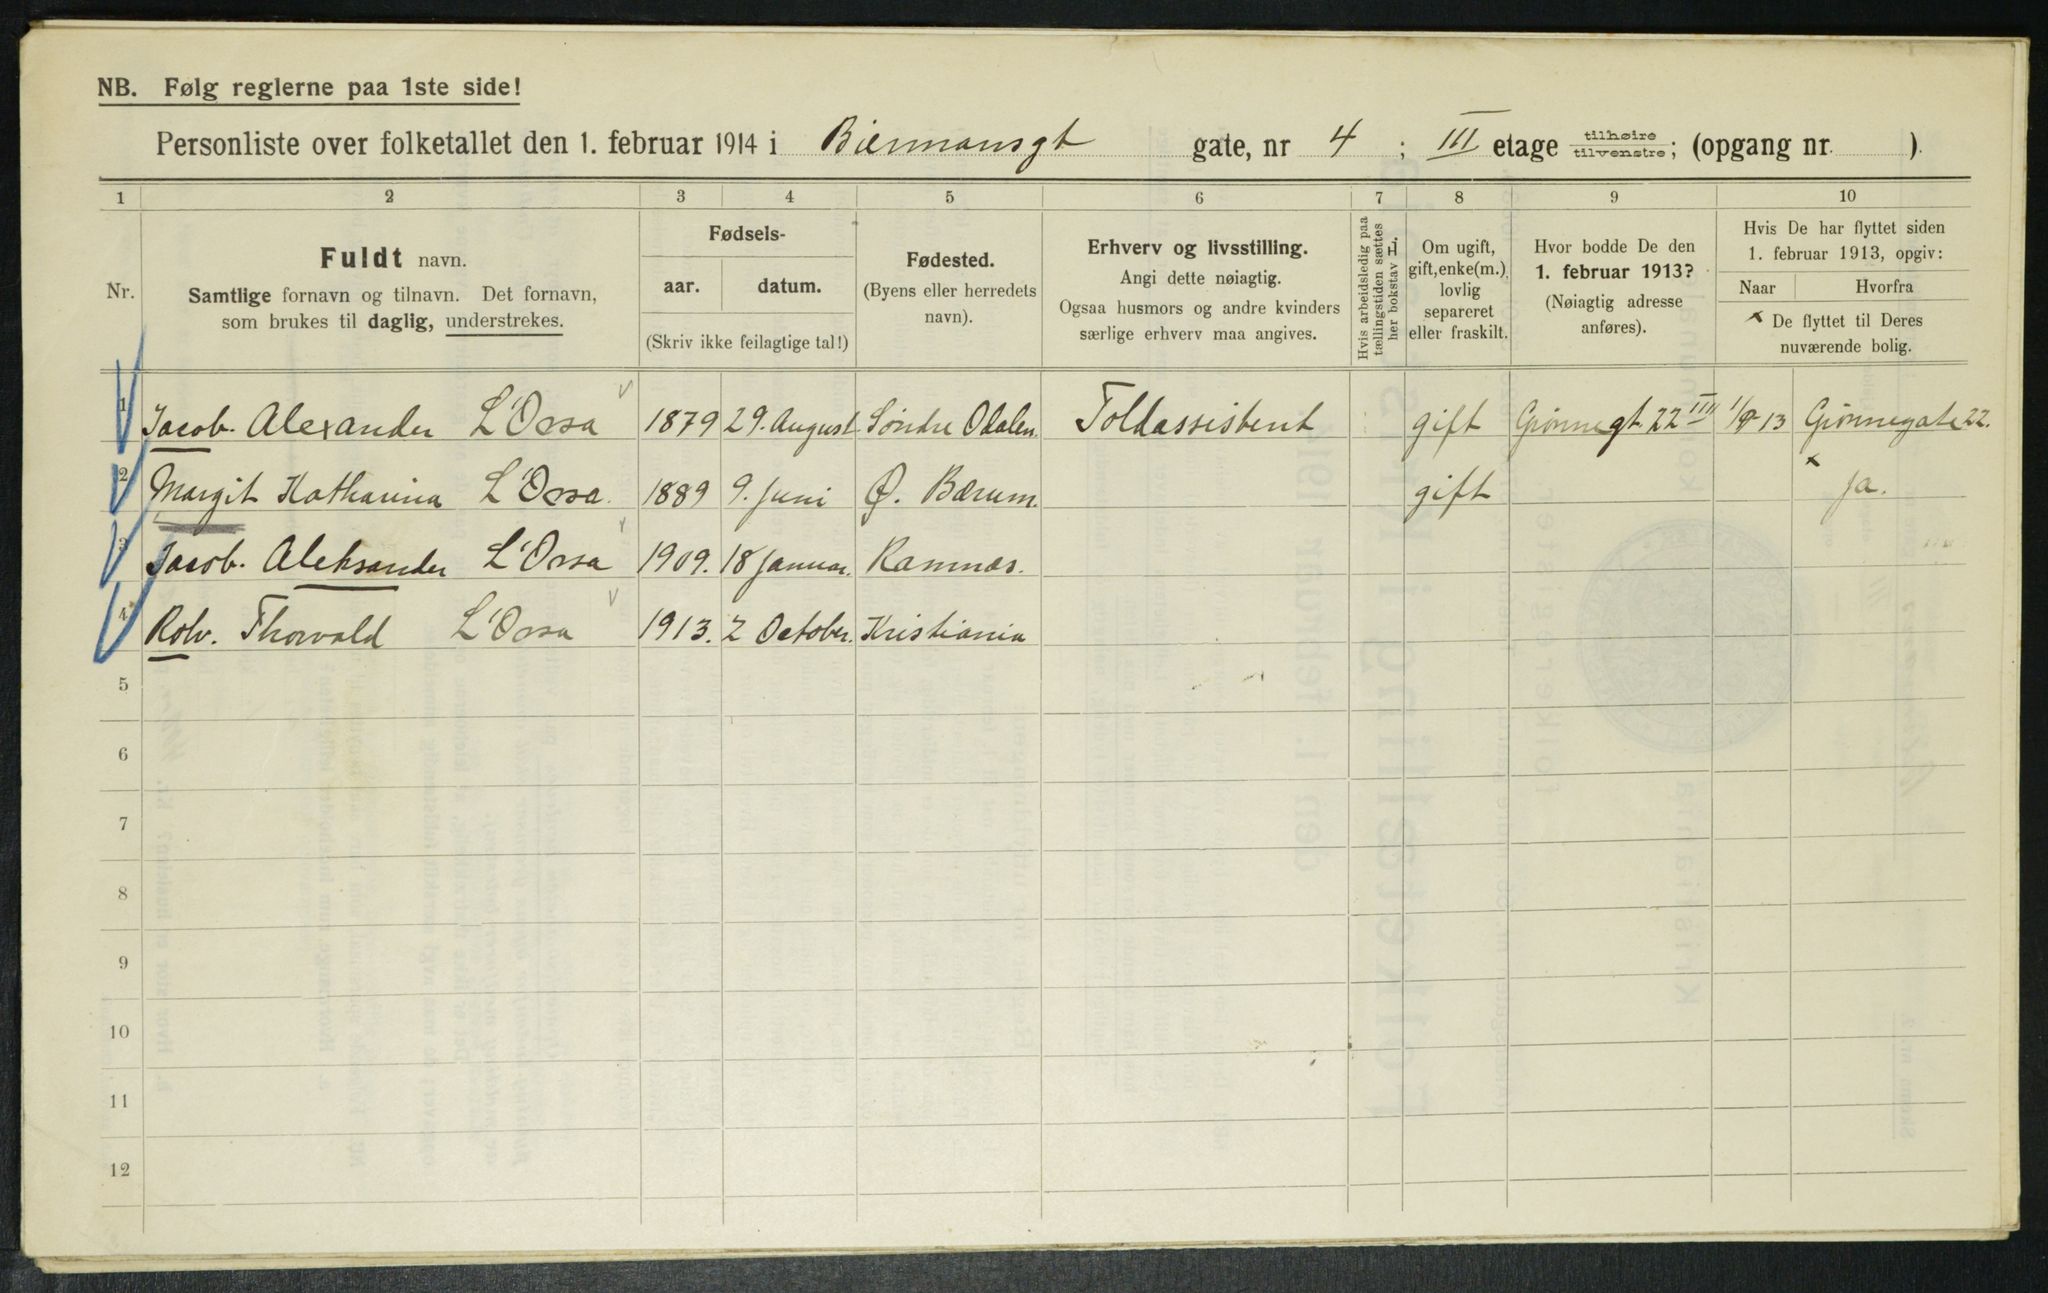 NB. Følg reglerne paa 1ste side!
Personliste over folketallet den 1. februar 1914 i Biermansgt gate, nr 4 ; III etage tilhøire tilvenstre; (opgang nr. ).
1 2 3 4 5 6 7 8 9 10
Nr.
Fuldt navn.
Samtlige fornavn og tilnavn. Det fornavn,
som brukes til daglig, understrekes.
Fødsels-
aar. datum.
(Skriv ikke feilagtige tal!)
Fødested.
(Byens eller herredets
navn).
Erhverv og livsstilling.
Angi dette nøiagtig.
Ogsaa husmors og andre kvinders
særlige erhverv maa angives.
Hvis arbeidsledig paa
tællingstiden sættes
her bokstav H.
Om ugift,
gift, enke(m.),
lovlig
separeret
eller fraskilt.
Hvor bodde De den
1. februar 1913?
(Nøiagtig adresse
anføres).
Hvis De har flyttet siden
1. februar 1913, opgiv:
Naar Hvorfra
x De flyttet til Deres
nuværende bolig.
1 Jacob. Alexander L'Orsa 1879 29. August Søndre Odalen. Toldassistent gift Grønnegt. 22 III 13 Grønnegate 22.
2 Margit Katharina L'Orsa. 1889 9. Juni Ø. Bærum. gift x ja.
3 Jacob. Aleksander L'Orsa 1909. 18 Januar. Ramnæs.
4 Rolv. Thorvald L'Orsa 1913. 2 October. Kristiania
5
6
7
8
9
10
11
12